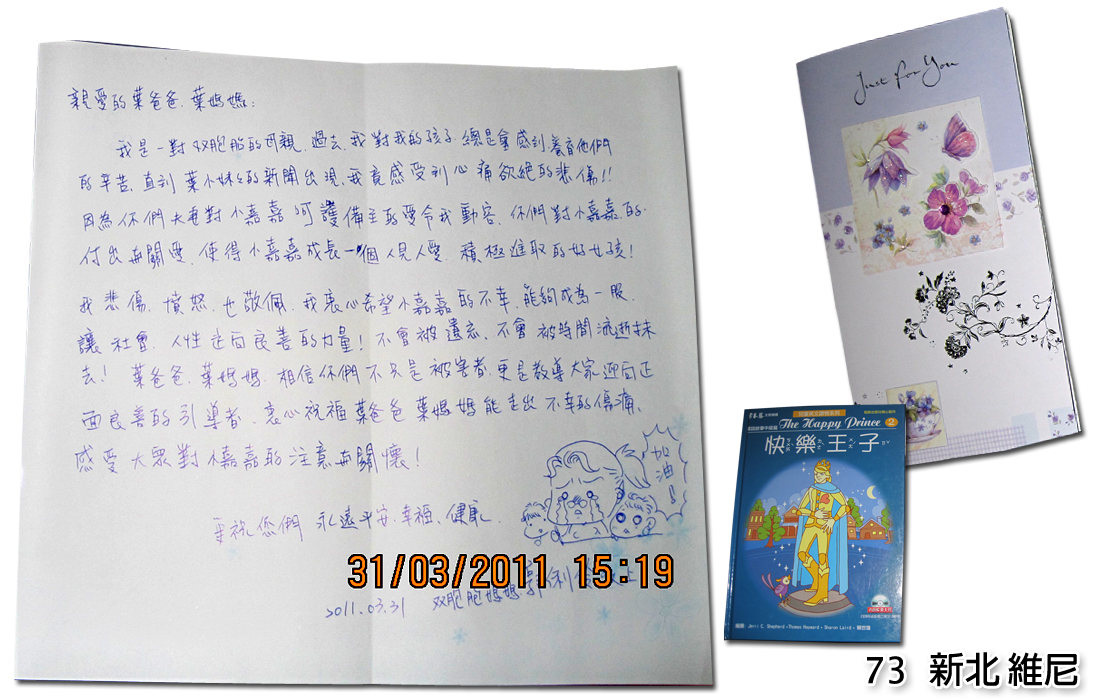 親愛的葉爸爸、葉媽媽:
我是一對双胞胎的母親,過去,我對我的孩子,總是會感到養育他們
的辛苦,直到葉小妹妹的新聞出現,我竟感受到心痛欲絕的悲傷!!
因為你們夫妻對小嘉嘉呵護備至的愛令我動容,你們對小嘉嘉的
付出與關愛,使得小嘉嘉成長一個人見人愛、積極進取的好女孩!
我悲傷、憤怒、也敬佩,我衷心希望小嘉嘉的不幸,能夠成為一股
讓社會、人性走向良善的力量!不會被遺忘、不會被時間流逝抹
去! 葉爸爸、葉媽媽,相信你們不只是被害者,更是教導大家迎向正
面良善的引導者,衷心祝福葉爸爸葉媽媽能走出不幸的傷痛、
感受大眾對小嘉嘉的注意與關懷!
加油!
祝您們 永遠平安、幸福、健康
31/03/2011 15:19
双胞胞媽媽
2011.03.31
Just for You
The Happy Prince 2
快樂王子
Jerri C. Shepherd • Thomas Hayward • Sharon Laird
73 新北 維尼